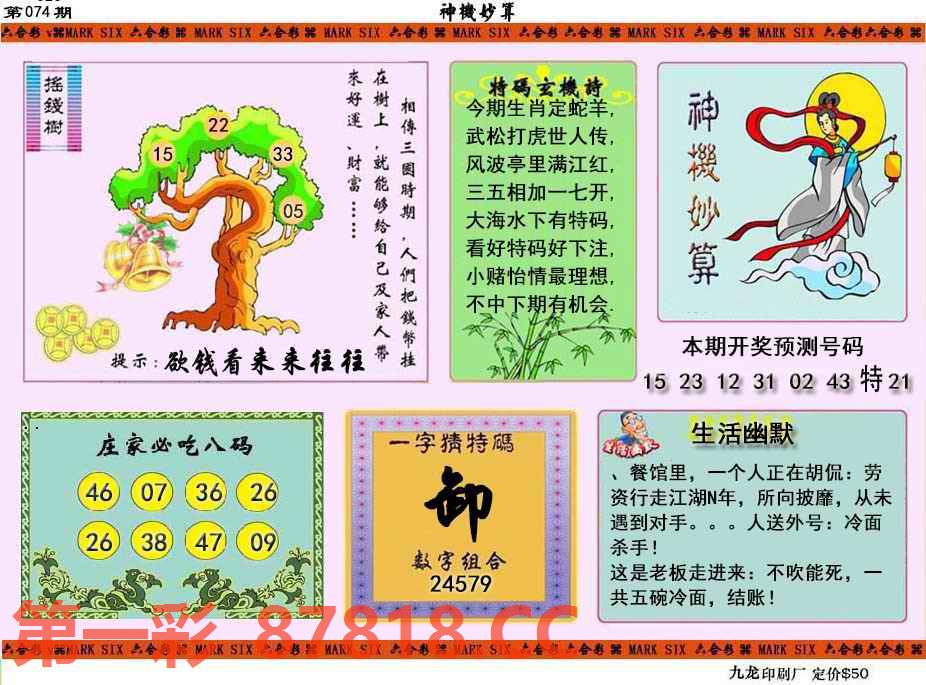 第074期
神機妙算
六合彩 MARK SIX 六合彩 MARK SIX 六合彩 MARK SIX 六合彩 MARK SIX 六合彩 六合彩 MARK SIX 六合彩 MARK SIX 六合彩 六合彩
搖錢樹
相傳三國時期，人們把錢幣挂
在樹上，就能够給自己及家人帶
來好運、財富……
22
15
33
05
提示：欲钱看来来往往
特碼玄機詩
今期生肖定蛇羊,
武松打虎世人传,
风波亭里满江红,
三五相加一七开,
大海水下有特码,
看好特码好下注,
小赌怡情最理想,
不中下期有机会.
神機妙算
本期开奖预测号码
15 23 12 31 02 43 特 21
庄家必吃八码
46 07 36 26
26 38 47 09
一字猜特碼
卸
数字组合
24579
生活幽默
生活幽默
、餐馆里，一个人正在胡侃：劳
资行走江湖N年，所向披靡，从未
遇到对手。。。人送外号：冷面
杀手！
这是老板走进来：不吹能死，一
共五碗冷面，结账！
第一彩 87818.CC
六合彩 MARK SIX 六合彩 MARK SIX 六合彩 MARK SIX 六合彩 MARK SIX 六合彩 六合彩 MARK SIX 六合彩 MARK SIX 六合彩 六合彩
九龙印刷厂 定价$50